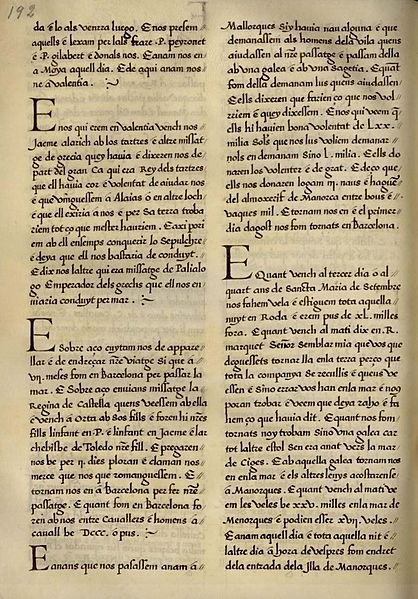 192
da é lo als venrra luego. E nos presem
aquells e lexam per lals fraze .P. peyronet
e .P. gilabert e donals nos. E anam nos en
a Moya aquell dia. E de aqui anam nos
ne a valentia.
E nos qui erem en valentia vench nos
Jaeme alarich ab los tartres é altre missat-
ge de grecia quey hauia é dixeren nos de
part del gran Ca qui era Rey dels tartres
que ell hauia cor é volentat de aiudar nos
é que vinguessem a Alaias ó en altre loch
é que ell exiria a nos é per Sa terra troba
riem tot ço que mester hauriem. E axi pori
em ab ell ensemps conquerir lo Sepulchre
é deya que ell nos bastaria de conduyt.
E dix nos laltre qui era missatge de Palialo
go Emperador dels grechs que ell nos en
uiaria conduyt per mar.
E Sobre aço cuytam nos de appare
llar é de endreçar nre viatge Si que a
.vij. meses fom en Barcelona per passar la
mar. E Sobre aço enuians missatge la
Regina de Castella quens veessem ab ella
é vench a Orta ab sos fills é foren hi nres
fills linfant en .P. é linfant en Jaeme é lar
chebisbe de Toledo nre fill. E pregaren
nos be per .ij. dies ploran é claman nos
merce que nos que romanguessem. E
tornam nos en a Barcelona per fer nre
passatge. E quant fom en Barcelona fo
ren ab nos entre Cauallers é homens a
cauall be DCCC. ó pus.
E anans que nos passassem anam á
Mallorques Si y hauia nau alguna é que
demanassem als homens dela vila quens
aiudassen al nre passatge é passam della
ab vna galea é ab vna Sagetia. E quant
fom della demanam lus quens aiudassen
E ells dixeren que farien ço que nos vol
rriem é quey dixessem. E nos qui veem q
ells hi hauien bona volentat de L.xx.
milia Sols que nos lus voliem demanar
nols en demanam Sino .l. milia. E ells do
naren los volenter é de grat. E de ço que
ells nos donaren logam .iij. naus é hague
del almoxerif de Manorca entre bous é
vaques mil. E tornam nos en é el primer
dia dagost nos fom tornats en Barcelona.
E Quant vench al tercer dia ó al
quart ans de Sancta Maria de Setembre
nos fahem vela é estiguem tota aquella
nuyt en Roda é erem pus de xl. milles
fora. E quant vench al mati dix en .R.
marquet Señor Semblar mia que vos que
deguessets tornar lla en la terra perço que
tota la companya Se recullis é que us ve
essen é Sino errar vos han en la mar é nog
poran trobar é veem que deya raho é fa
hem ço que hauia dit. E quant nos fom
tornats noy trobam Sino vna galea car
tot laltre estol Sen era anat vers la mar
de Ciges. E ab aquella galea tornam nos
en en la mar é els altres lenys acostarense
a Manorques. E quant vench al mati ve
em les veles be xxv. milles en la mar de
Menorques é podien esser xvij. veles.
E anam aquell dia é tota aquella nit é
laltre dia a hora de vespres fom endret
dela entrada dela Jlla de Manorques.